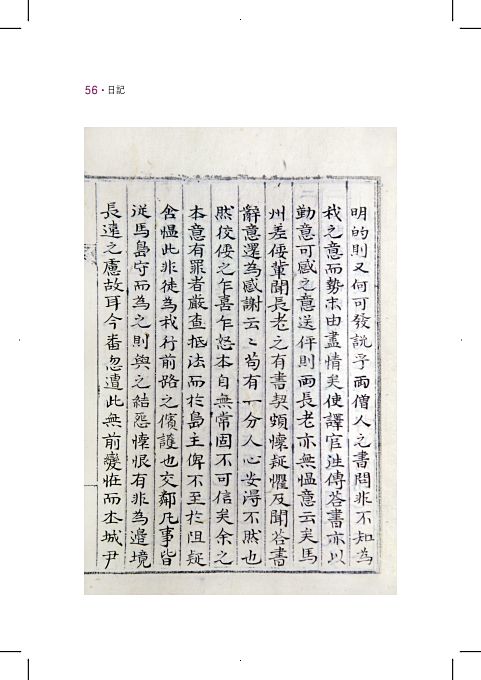 56・日記
明的則又何可發說乎兩僧人之書問非不知為
我之意而勢末由盡情矣使譯官往傳答書亦以
勤意可感之意送伻則兩長老亦無慍意云矣馬
州差倭輩聞長老之有書契頗懷疑懼及聞答書
辭意還為感謝云云苟有一分人心安得不然也
然狡倭之乍喜乍怒本自無常固不可信矣余之
本意有罪者嚴查抵法而於島主俾不至於阻疑
含慍此非徒為我行前路之儐護也交鄰凡事皆
從馬島守而為之則與之結怨懷恨有非為邊境
長遠之慮故耳今番忽遭此無前變怪而大城尹